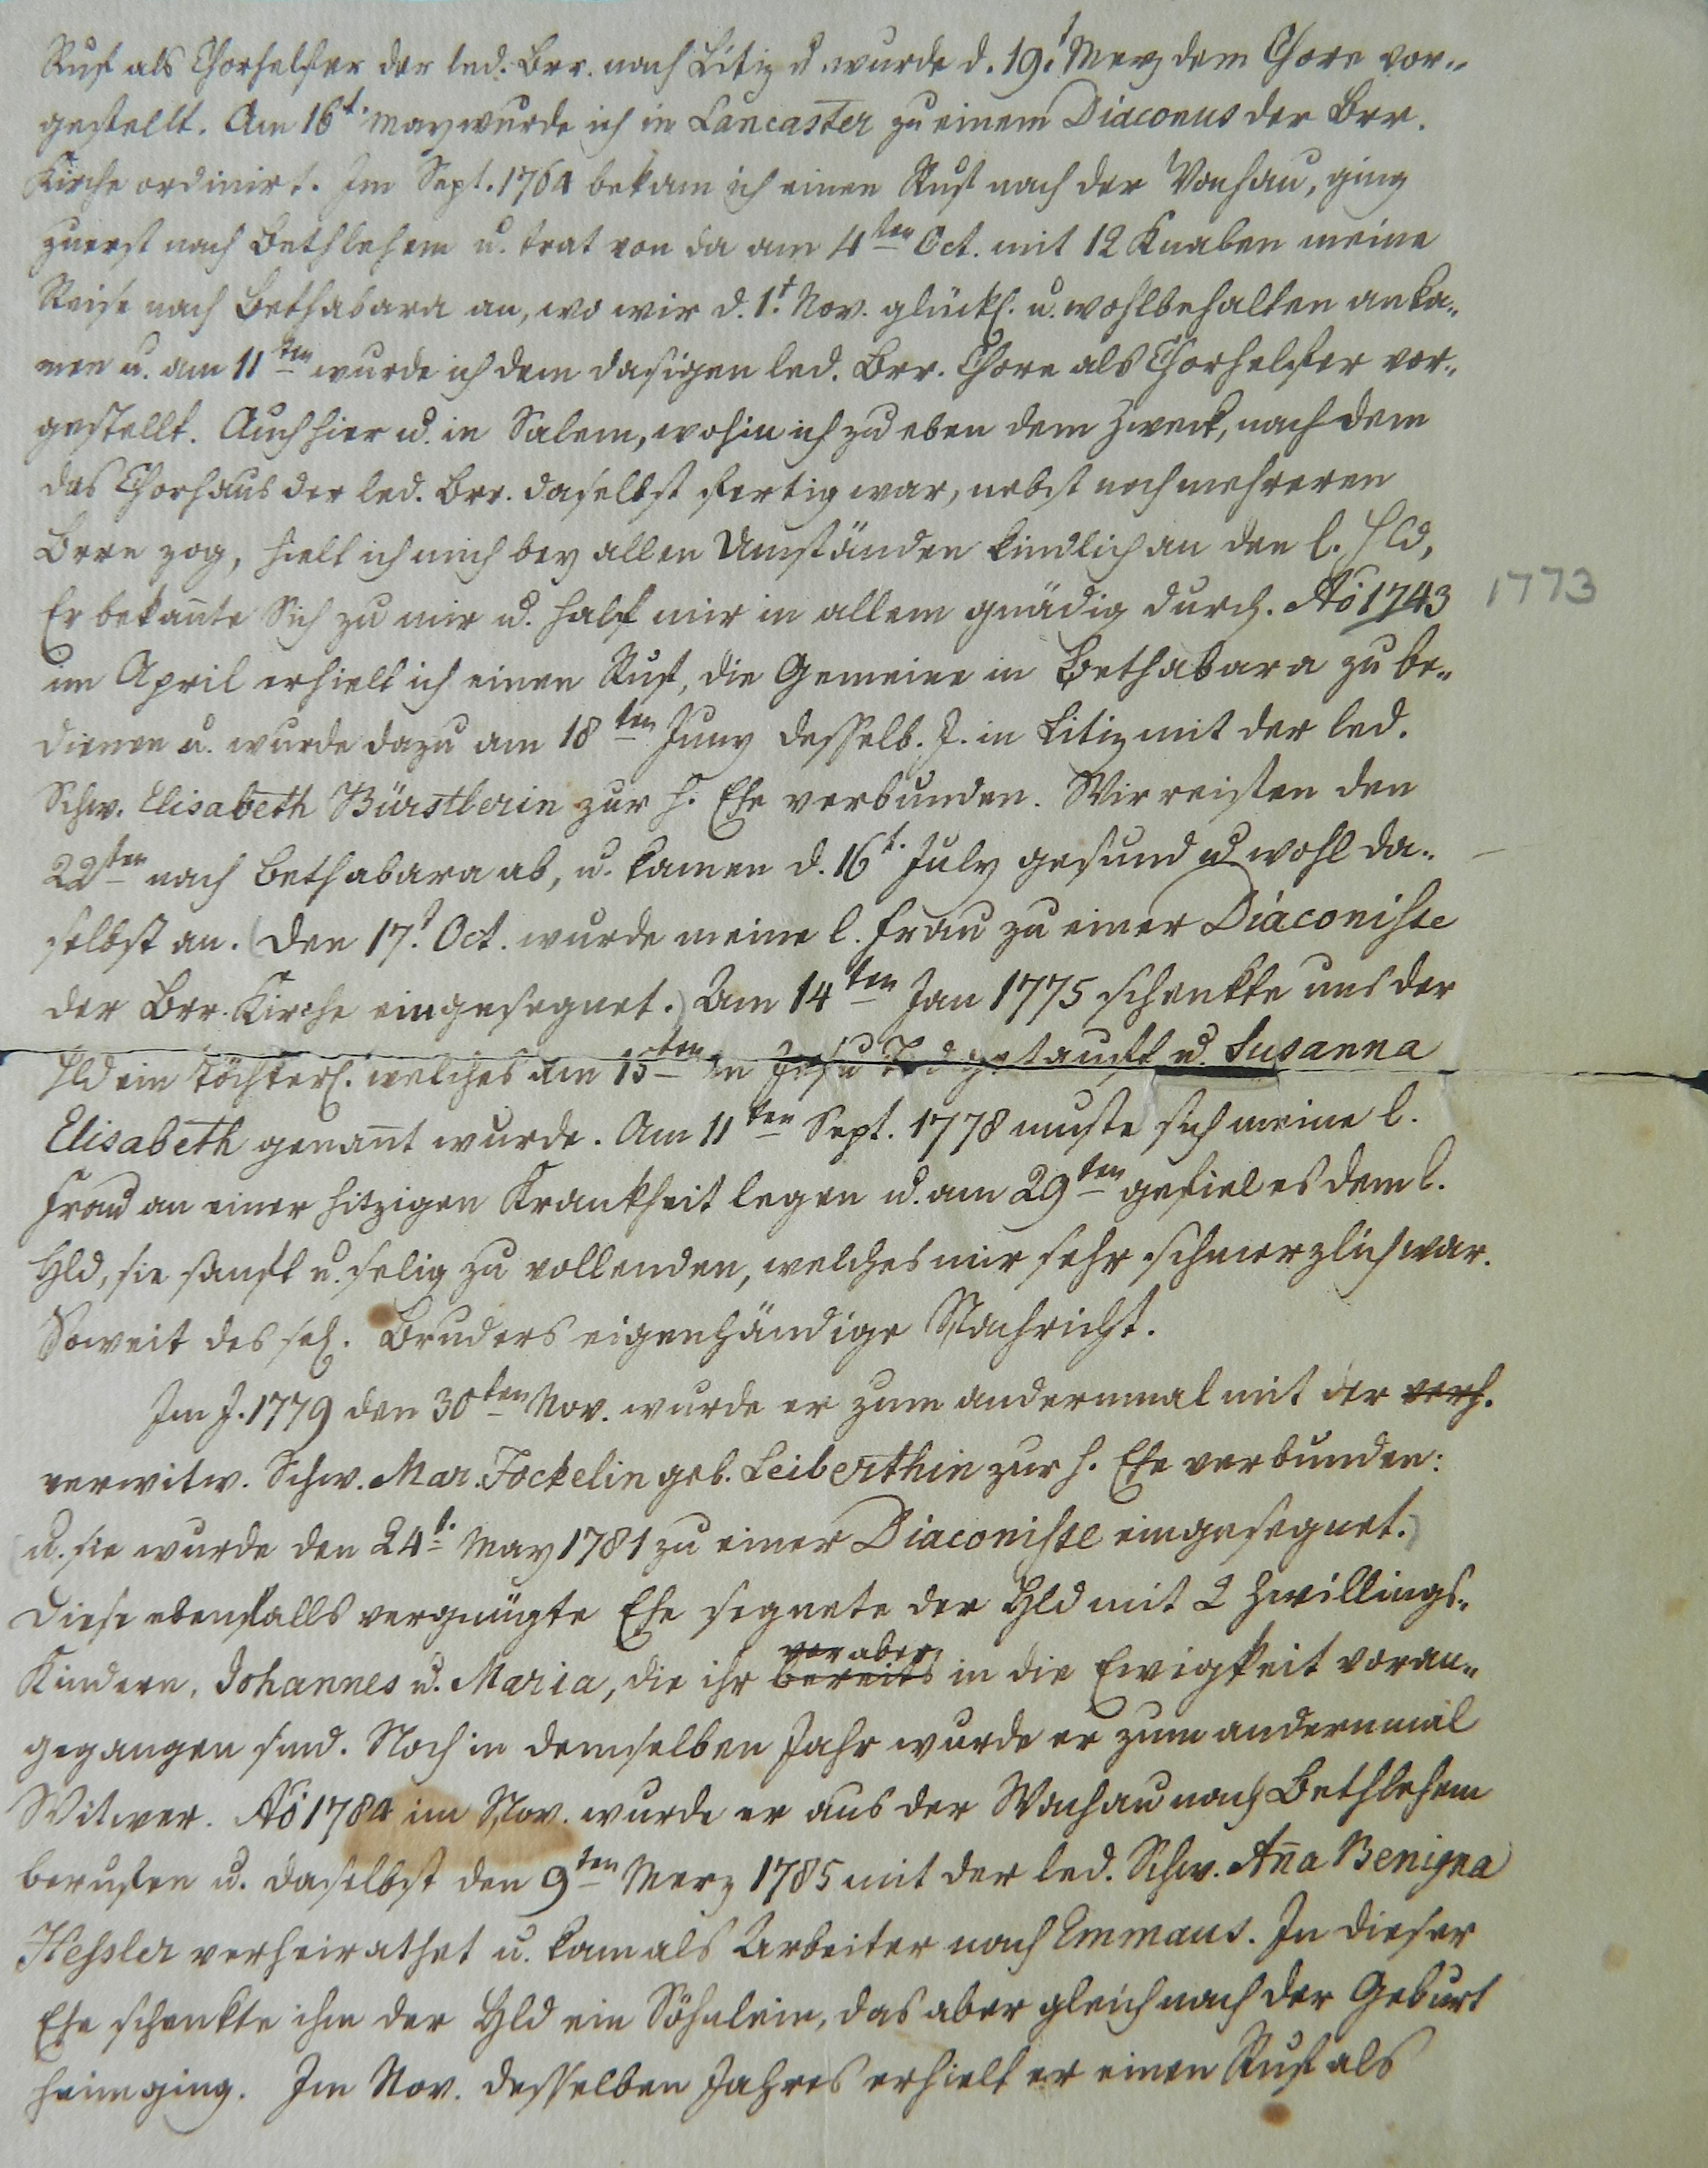 Ruf als Chorhelfer der led. Brr. nach Litiz u. wurde d. 19.t Merz dem Chore vor-
gestellt. Am 16t. May wurde ich in Lancaster zu einem Diaconus der Brr.
Kirche ordinirt. Im Sept. 1764 bekam ich einen Ruf nach der Wachau, ging
zuerst nach Bethlehem u. trat von da am 4ten Oct. mit 12 Knaben meine
Reise nach Bethabara an, wo wir d. 1t. Nov. glückl. u. wohlbehalten anka-
men u. am 11ten wurde ich dem dasigen led. Brr. Chore als Chorhelfer vor-
gestellt. Auch hier u. in Salem, wohin ich zu eben dem Zweck, nach dem
das Chorhaus der led. Brr. daselbst fertig war, nebst noch mehreren
Brrn zog, hielt ich mich bey allen Umständen kindlich an den l. Hld,
Er bekañte Sich zu mir u. half mir in allem gnädig durch. Aõ 1743 1773
im April erhielt ich einen Ruf, die Gemeine in Bethabara zu be-
dienen u. wurde dazu am 18ten Juny desselb. J. in Litiz mit der led.
Schw. Elisabeth Bürstlerin zur h. Ehe verbunden. Wir reisten den
22sten nach Bethabara ab, u. kamen d. 16t. July gesund u wohl da-
selbst an. (Den 17.t Oct. wurde meine l. Frau zu einer Diaconisse
der Brr. Kirche eingesegnet.) Am 14ten Jan 1775 schenkte uns der
Hld ein Töchterl. welches am 15ten in Jesu Tod getauft u. Susanna
Elisabeth genañt wurde. Am 11ten Sept. 1778 muste sich meine l.
Frau an einer hitzigen Krankheit legen u. am 29ten gefiel es dem l.
Hld, sie sanft u. selig zu vollenden, welches mir sehr schmerzlich war.
Soweit des sel. Bruders eigenhändige Nachricht.
Im J. 1779 den 30ten Nov. wurde er zum andernmal mit der verh.
verwitw. Schw. Mar. Jockelin geb. Leiberthin zur h. Ehe verbunden:
(u. sie wurde den 24t. May 1781 zu einer Diaconisse eingesegnet.)
Diese ebenfalls vergnügte Ehe segnete der Hld mit 2 Zwillings-
Kindern, Johannes u. Maria, die ihr bereits in die Ewigkeit voran-
gegangen sind. Noch in demselben Jahr wurde er zum andernmal
Witwer. Aõ 1784 im Nov. wurde er aus der Wachau nach Bethlehem
berufen u. daselbst den 9ten Merz 1785 mit der led. Schw. Aña Benigna
Hessler verheirathet u. kam als Arbeiter nach Emmaus. In dieser
Ehe schenkte ihm der Hld ein Söhnlein, das aber gleich nach der Geburt
heimging. Im Nov. desselben Jahres erhielt er einen Ruf als